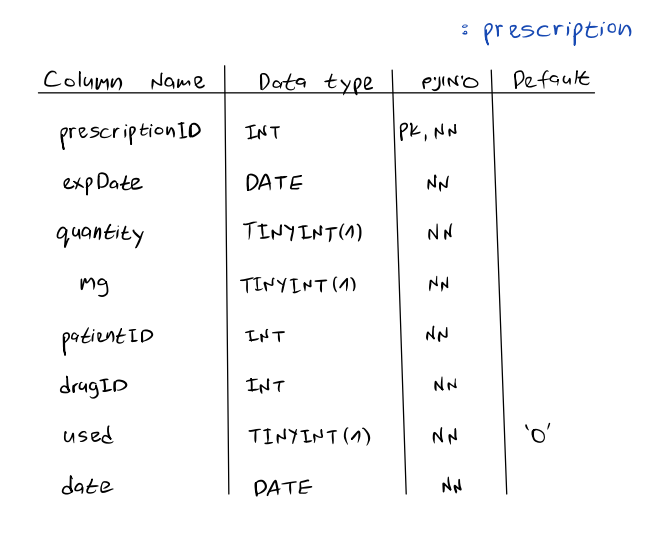 : prescription
Column Name Data type סימונים Default
prescriptionID INT PK, NN
expDate DATE NN
quantity TINYINT(1) NN
mg TINYINT(1) NN
patientID INT NN
drugID INT NN
used TINYINT(1) NN '0'
date DATE NN